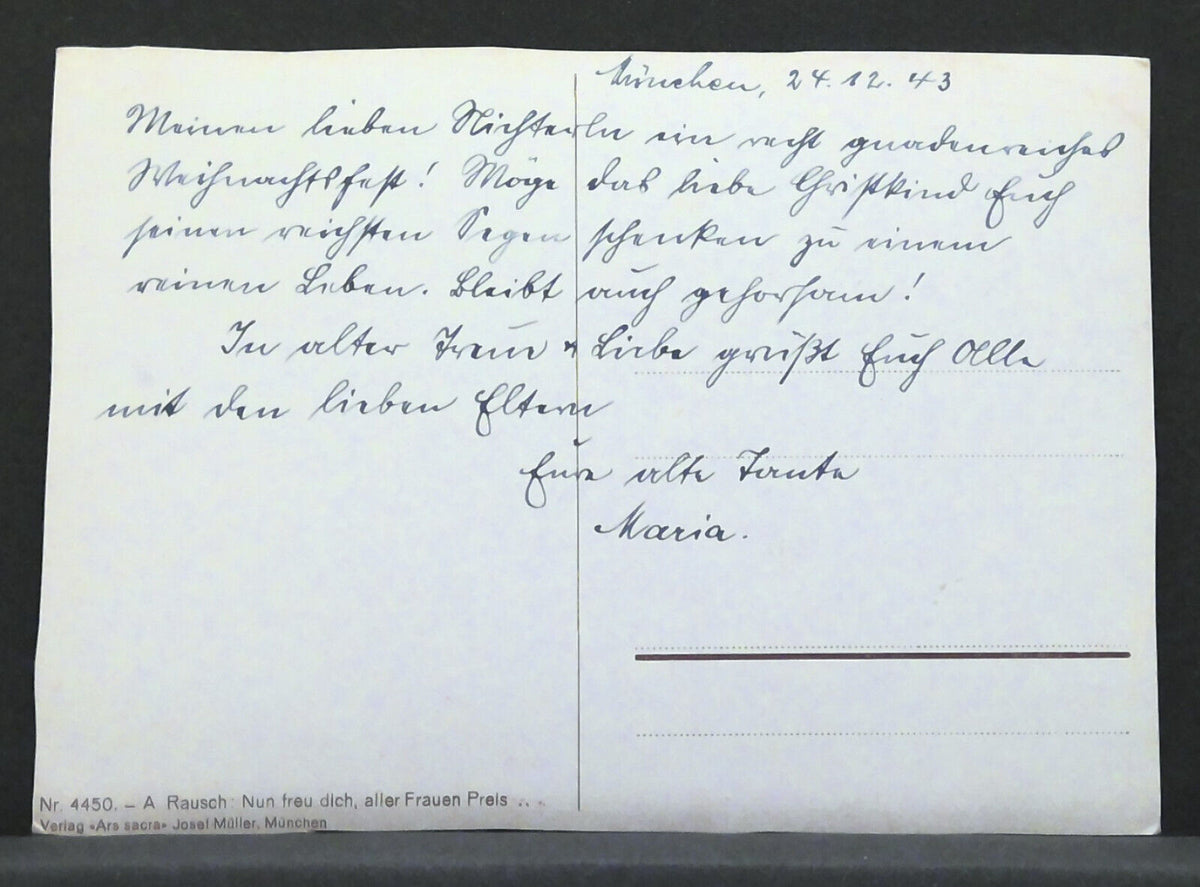 München, 24. 12. 43
Meinen lieben Nichterln ein recht gnadenreiches
Weihnachtsfest! Möge das liebe Christkind Euch
seinen reichsten Segen schenken zu einem
reinen Leben. Bleibt auch gehorsam!
In alter Treue u Liebe grüßt Euch Alle
mit den lieben Eltern
Eure alte Tante
Maria.
Nr. 4450. – A Rausch: Nun freu dich, aller Frauen Preis ...
Verlag «Ars sacra» Josef Müller, München